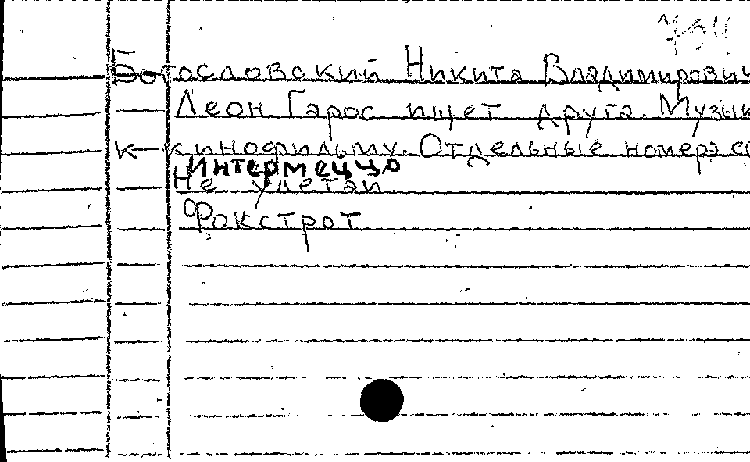 Богословский Никита Владимирович
Леон Гарос ищет друга. Музык
к кинофильму. Отдельные номера
Интермеццо
Не улетай
Фокстрот